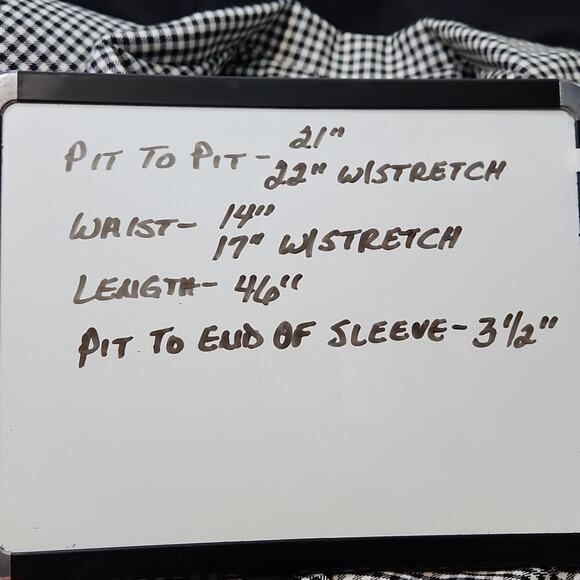 PIT TO PIT - 21"
22" W/STRETCH
WAIST - 14"
17" W/STRETCH
LENGTH - 46"
PIT TO END OF SLEEVE - 3 1/2"